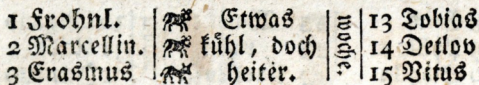 1 Frohnl. Etwas 13 Tobias
2 Marcellin. kühl, doch woche. 14 Detlov
3 Erasmus heiter. 15 Vitus